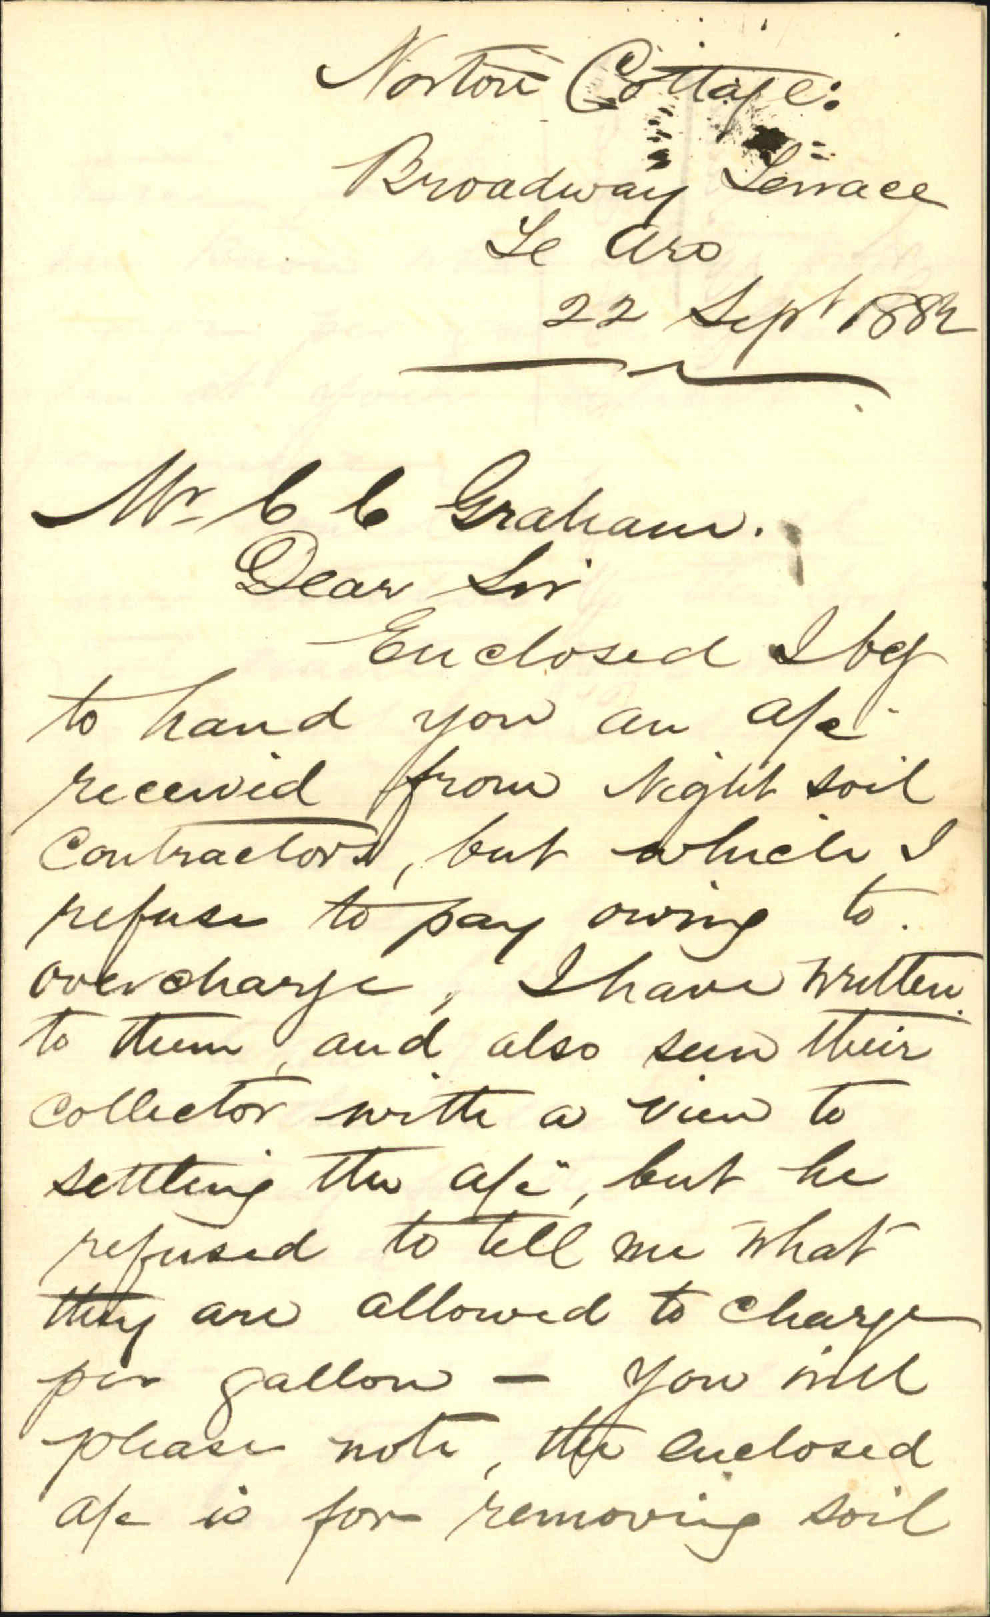 Norton Cottage:
Broadway Terrace
Te Aro
22 Sept 1882
Mr C C Graham.
Dear Sir
Enclosed I beg
to hand you an a/c
received from Night soil
Contractors, but which I
refuse to pay owing to
overcharge, I have written
to them, and also seen their
collector with a view to
settling the a/c, but he
refused to tell me what
they are allowed to charge
per gallon – you will
please note, the enclosed
a/c is for removing soil